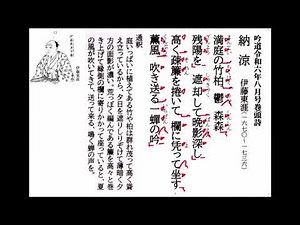 吟道令和六年八月号巻頭詩
納涼
伊藤東涯(一六七〇~一七三六)
満庭の竹柏 鬱 森森
残陽を 遮却して晩影深し
高く疎簾を捲いて 欄に凭って坐す
薫風 吹き送る 一蝉の吟
通釈
庭いっぱいに植えてある竹や柏は群れ茂って高く聳
え立っているから、夕日を遮りしりぞけて薄暗く夕
方の面影が濃い。荒っぽく編んである簾を高々と巻
き上げて縁側の欄に寄りかかって座っていると、夏
の風が吹いてきて、送って来る、鳴く蝉の声を。
伊藤東涯